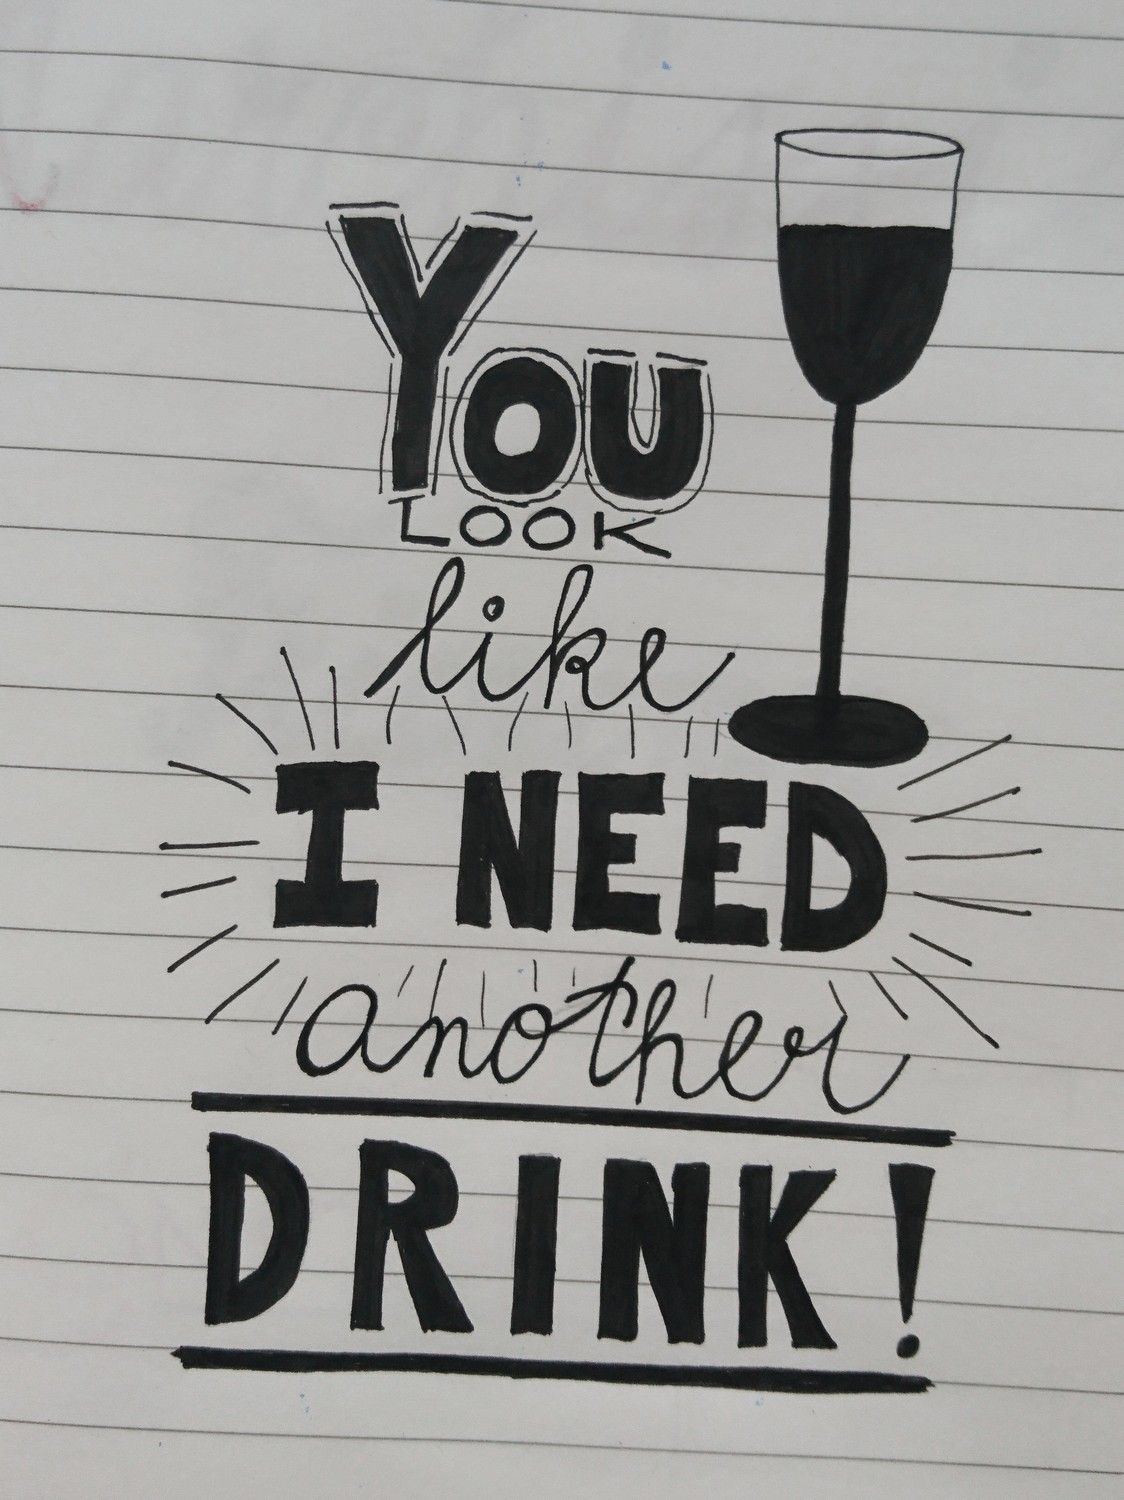 You
LOOK
like
I NEED
another
DRINK!